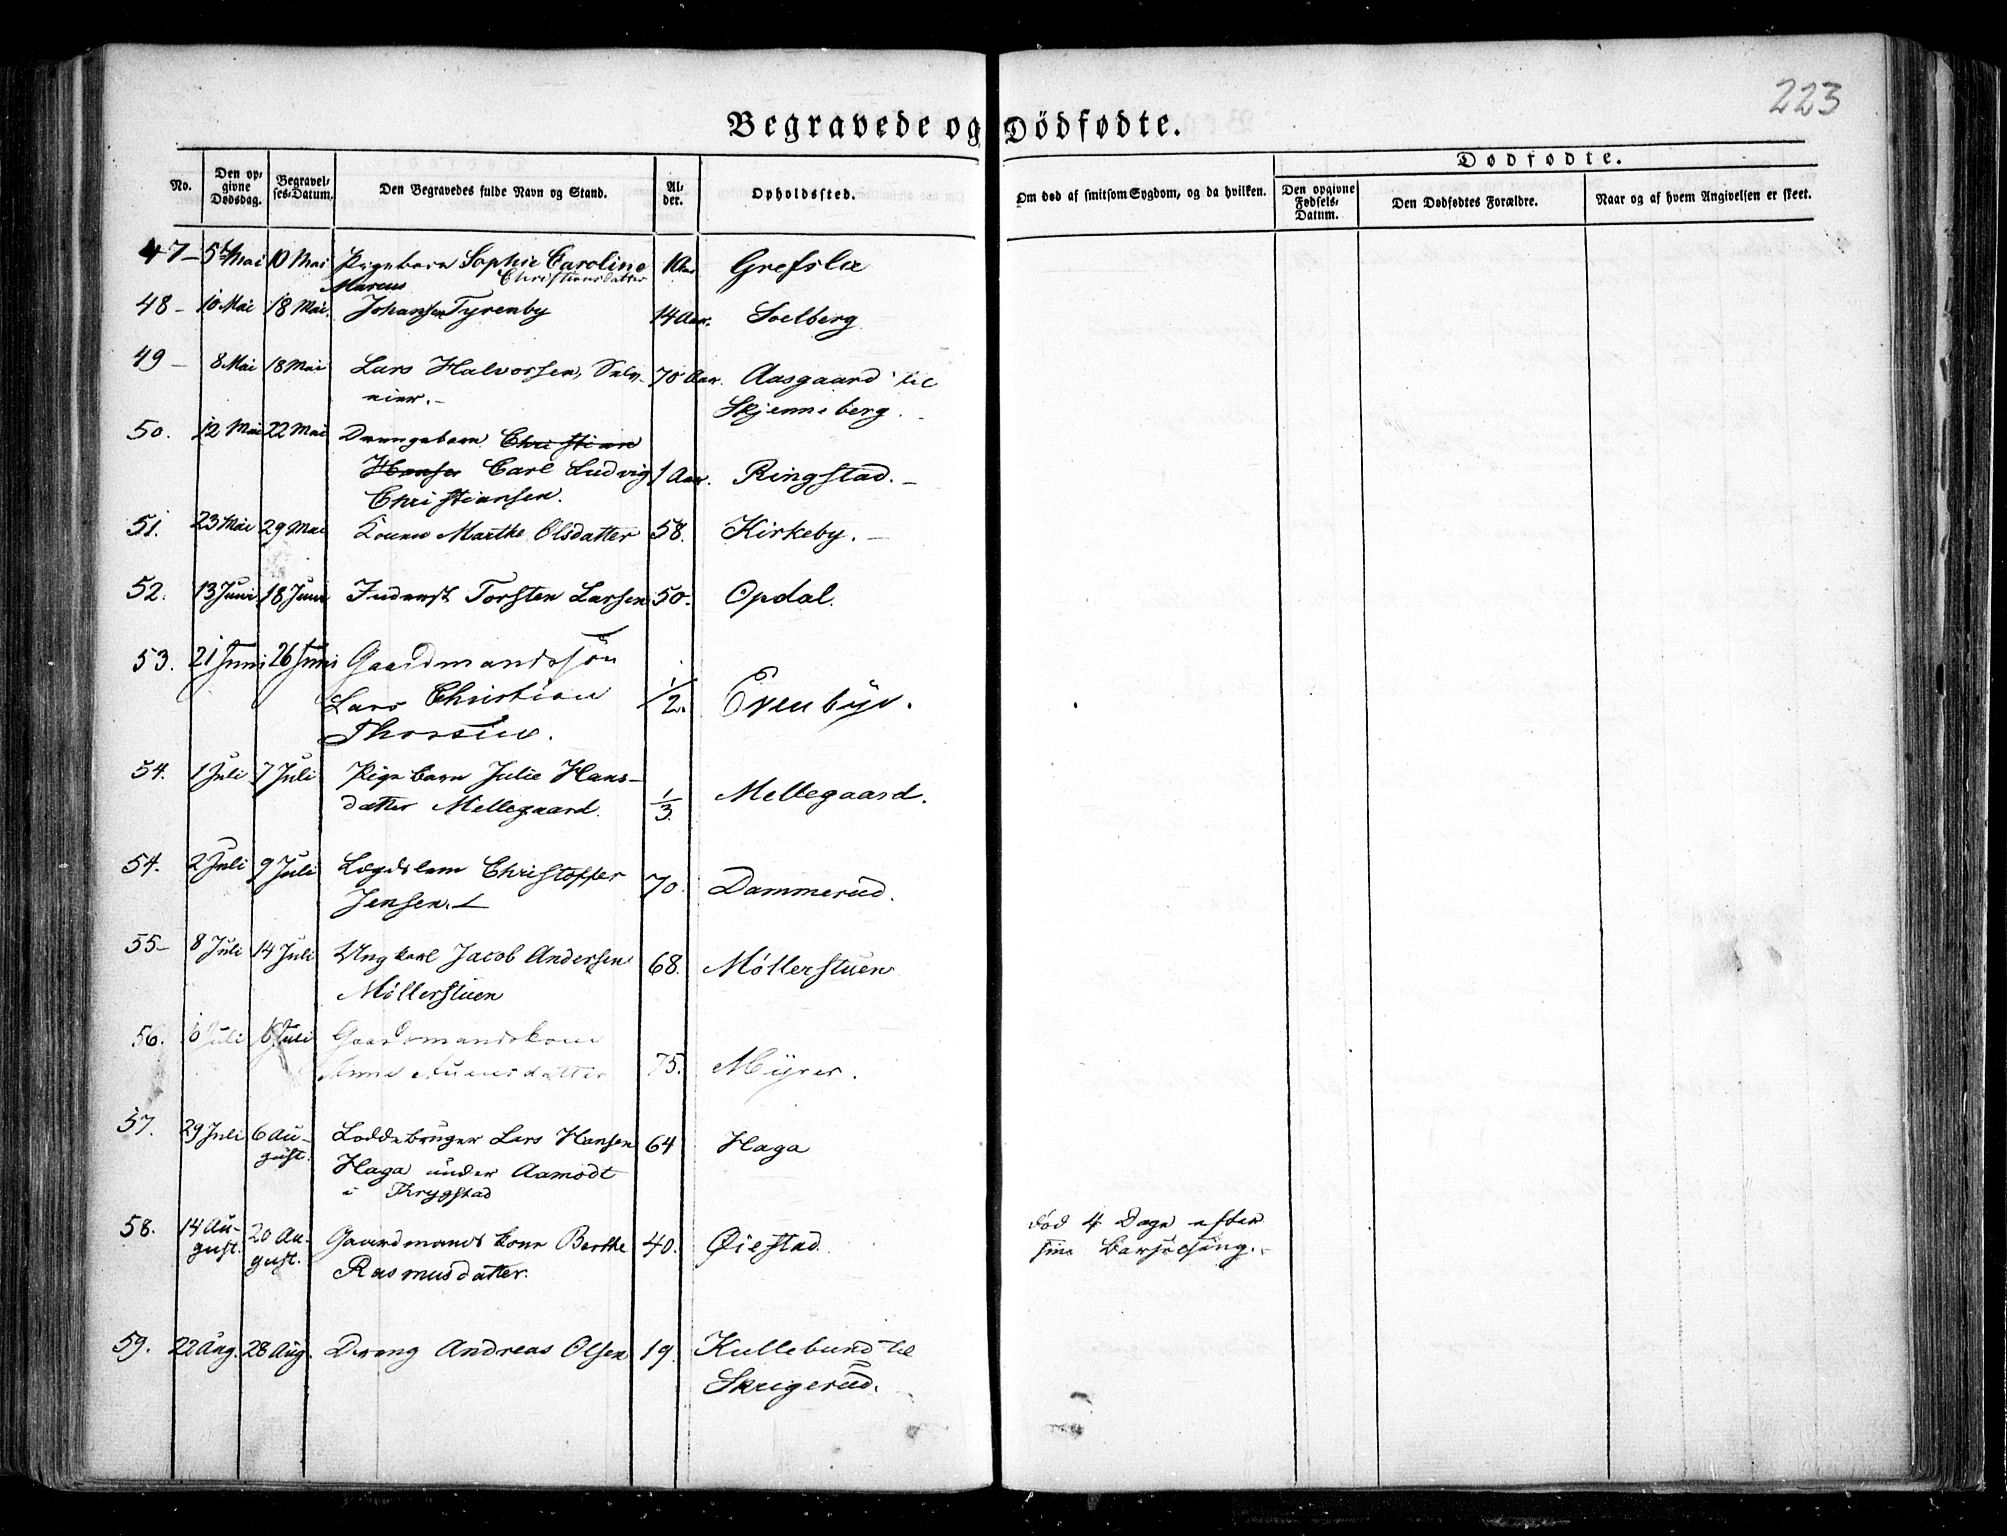 223
Begravede og Dödfödte.
Dødfødte.
No. Den opgivne Dødsdag. Begravelses-Datum. Den Begravedes fulde Navn og Stand. Alder. Opholdssted. Om død af smitsom Sygdom, og da hvilken. Den opgivne Fødsels-Datum. Den Dødfødtes Forældre. Naar og af hvem Angivelsen er skeet.
47- 5t Mai 10 Mai Pigebarn Sophie Caroline 1 Aar Grefslie
Christiansdatter
Marcus
48- 10 Mai 18 Mai. Johansen Tyrenby 14 Aar. Soelberg
49- 8 Mai 18 Mai Lars Halvorsen, Selv- 70 Aar. Aasgaard til
eier.- Skjenneberg.
50. 12 Mai 22 Mai Drengebarn Christian
Hansen Carl Ludvig 1 Aar. Ringstad.-
Christiansen.
51. 23 Mai 29 Mai Konen Marthe Olsdatter 58. Kirkeby.-
52. 13 Juni 18 Juni Inderst Torsten Larsen 50. Opdal.
53. 21 Juni 26 Juni Gaardmandssön
Lars Christian 1/2. Evenbye.
54. 1 Juli 7 Juli Pigebarn Julie Hans-
datter Mellegaard. 1/3. Mellegaard.
54. 2 Juli 9 Juli Lægdslem Christopher
Jensen. 70. Dammerud.
55- 8 Juli 14 Juli Ungkarl Jacob Andersen 68. Møllerstuen
Møllerstuen
56. Juli Juli Gaardmandskone
Anne 75. Myrer.
57. 29 Juli 6 Au- Loddebruger Lars Hansen 64 Haga
gust. Haga under Aamodt
i Trygstad
58. 14 Au- 20 Au- Gaardmands kone Berthe 40. Øiestad. død 4 Dage efter
gust. gust. Rasmusdatter. sin Barselseng.-
59. 22 Aug. 28 Aug. Dreng Andreas Olsen 19. Kullebund til
Skrigerud.